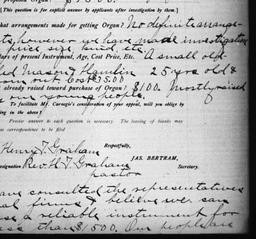 [This question is for explicit answer by applicant after investigation by them.]
what arrangements made for getting Organ? No definite arrange-
ts, however we have made investigation
price, size, kind, etc.
lars of present Instrument, Age, Cost Price, Etc. A small old
Mason & Hamlin 25 years old &
cost $35.00
already raised toward purchase of Organ? $100. Mostly raised
our young people
To facilitate Mr. Carnegie's consideration of your appeal, will you oblige by
ing in the above?
Precise answer to each question is necessary. The leaving of blanks may
correspondence to be filed
Respectfully,
Henry T. Graham
JAS. BERTRAM,
esignation Rev. H. T. Graham Secretary.
pastor
have consulted the representatives
al firms & believe we can
& reliable instrument for
less than $1500. Our people are